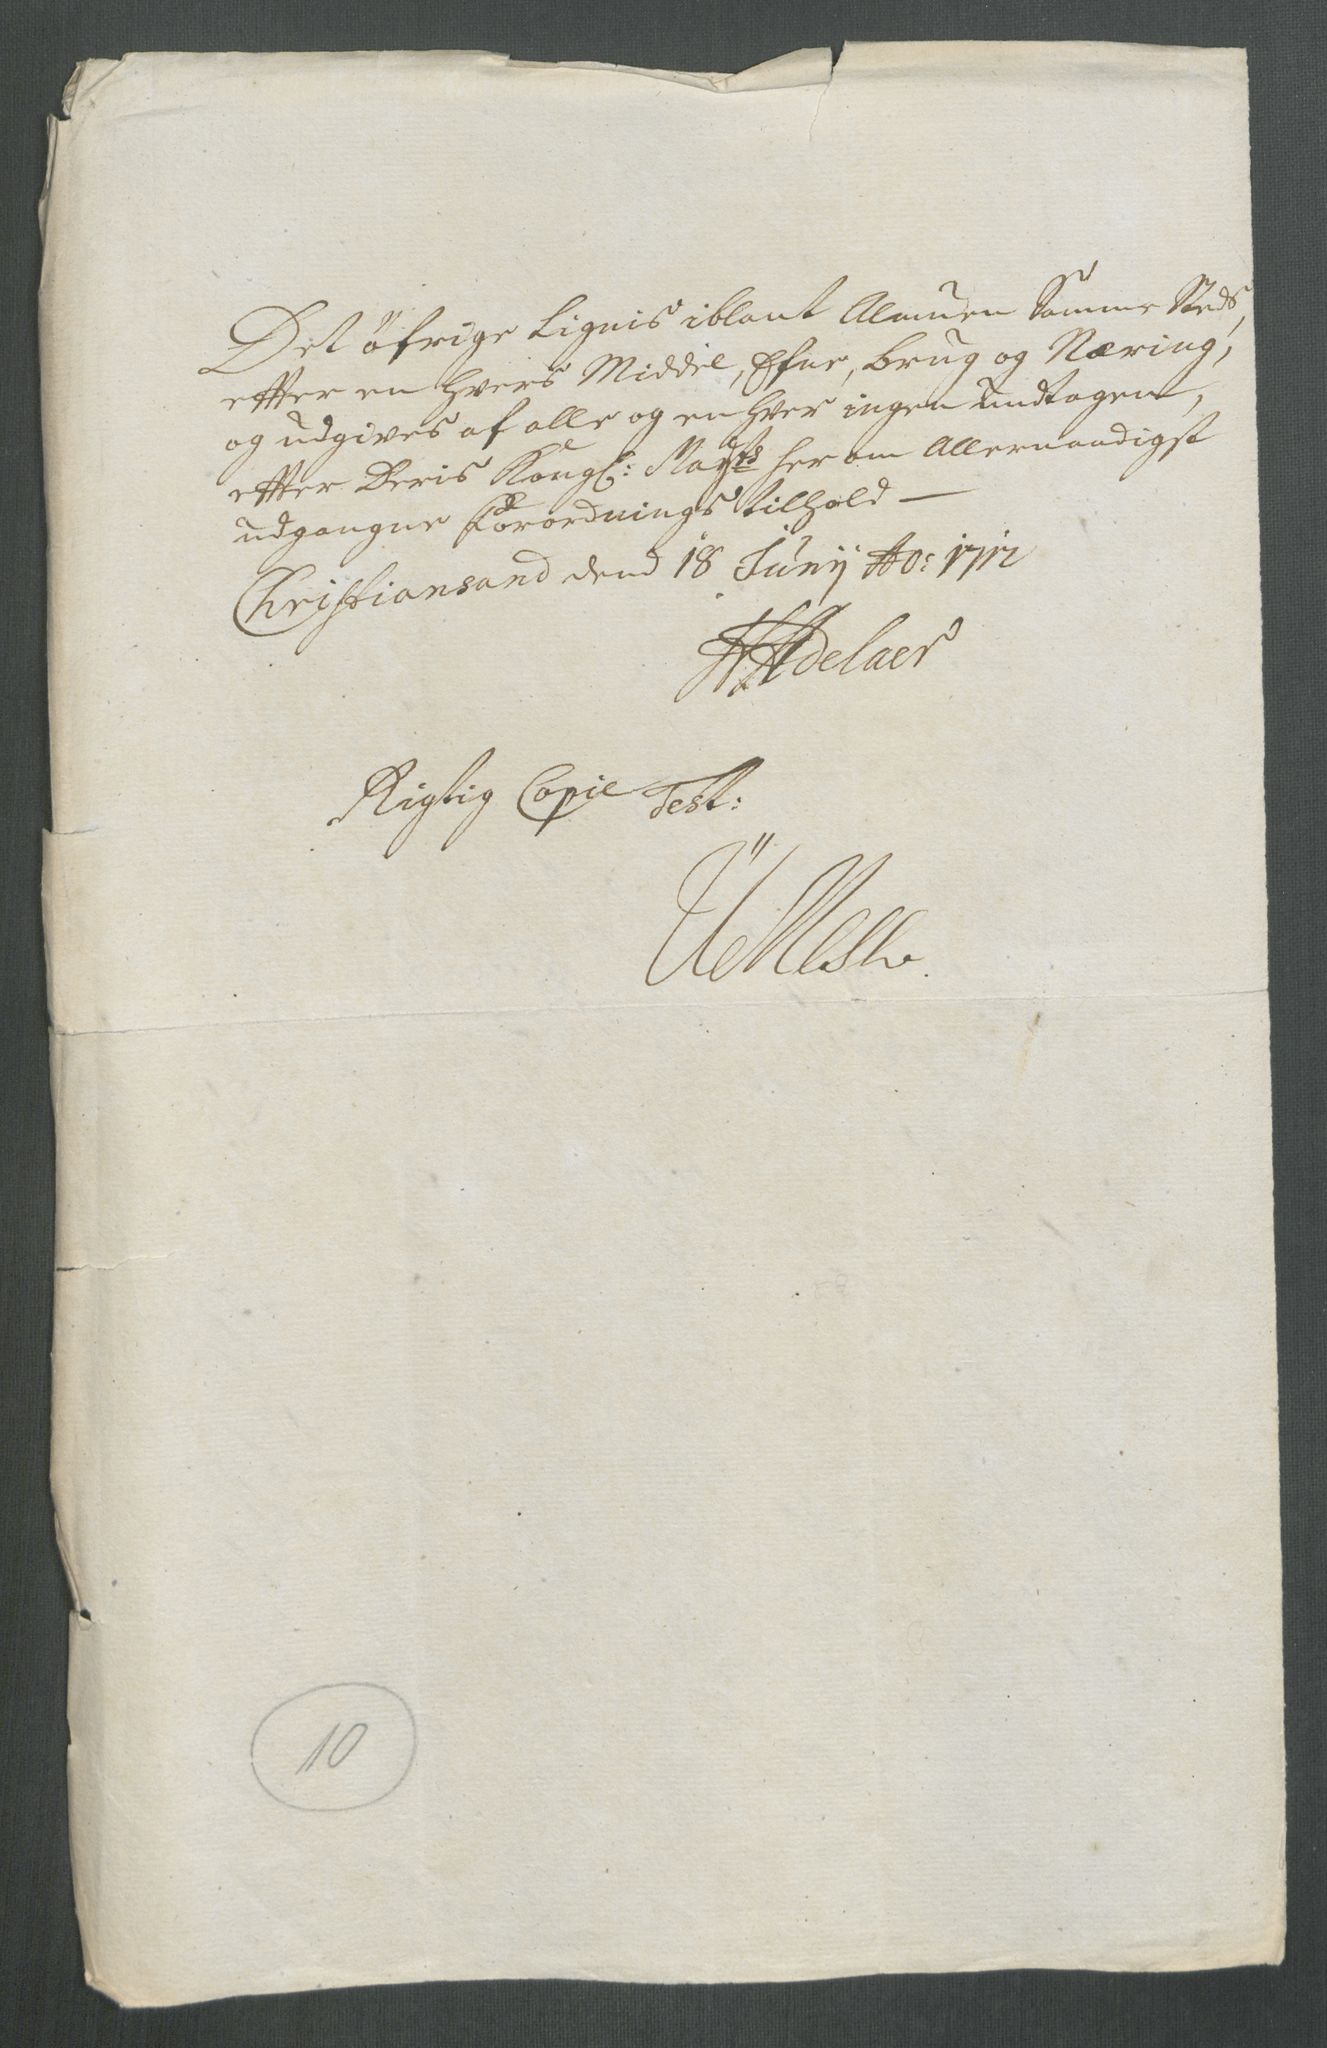 Det öfrige Lignis iblant Almuen Samme Steds,
efter en hvers Middel, Efne, brug og Næring,
og udgives af alle og en hver ingen undtagen,
efter Deris Kongl: Mayts her om Allernaadigst
udgangne Forordnings tilhold —
Christiansand dend 18 Junij Ao: 1712
HAdelaer
Rigtig Copie Test:
10